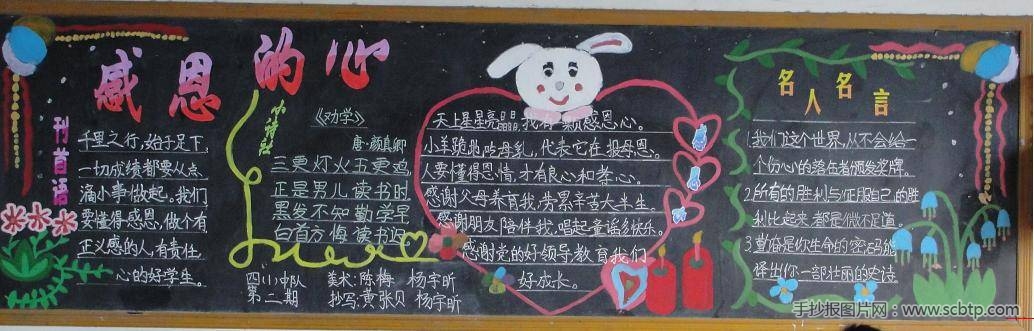 感恩的心
刊首语
千里之行,始于足下,
一切成绩都要从点
滴小事做起。我们
要懂得感恩,做个有
正义感的人,有责任
心的好学生。
小诗社
《劝学》
唐·颜真卿
三更灯火五更鸡,
正是男儿读书时,
黑发不知勤学早,
白首方悔读书迟。
四(1)中队
第二期
美术:陈梅 杨宇昕
抄写:黄张贝 杨宇昕
天上星星亮晶晶,我有一颗感恩心。
小羊跪着吃母乳,代表它在报母恩。
人要懂得恩情,才有良心和孝心。
感谢父母养育我,劳累辛苦大半生。
感谢朋友陪伴我,唱起童谣多快乐。
感谢党的好领导教育我们
好成长。
名人名言
1.我们这个世界,从不会给一
个伤心的落伍者颁发奖牌。
2.所有的胜利与征服自己的胜
利比起来,都是微不足道。
3.莫
生命的密码能
译出你一部壮丽的史诗
手抄报图片网:www.scbtp.com